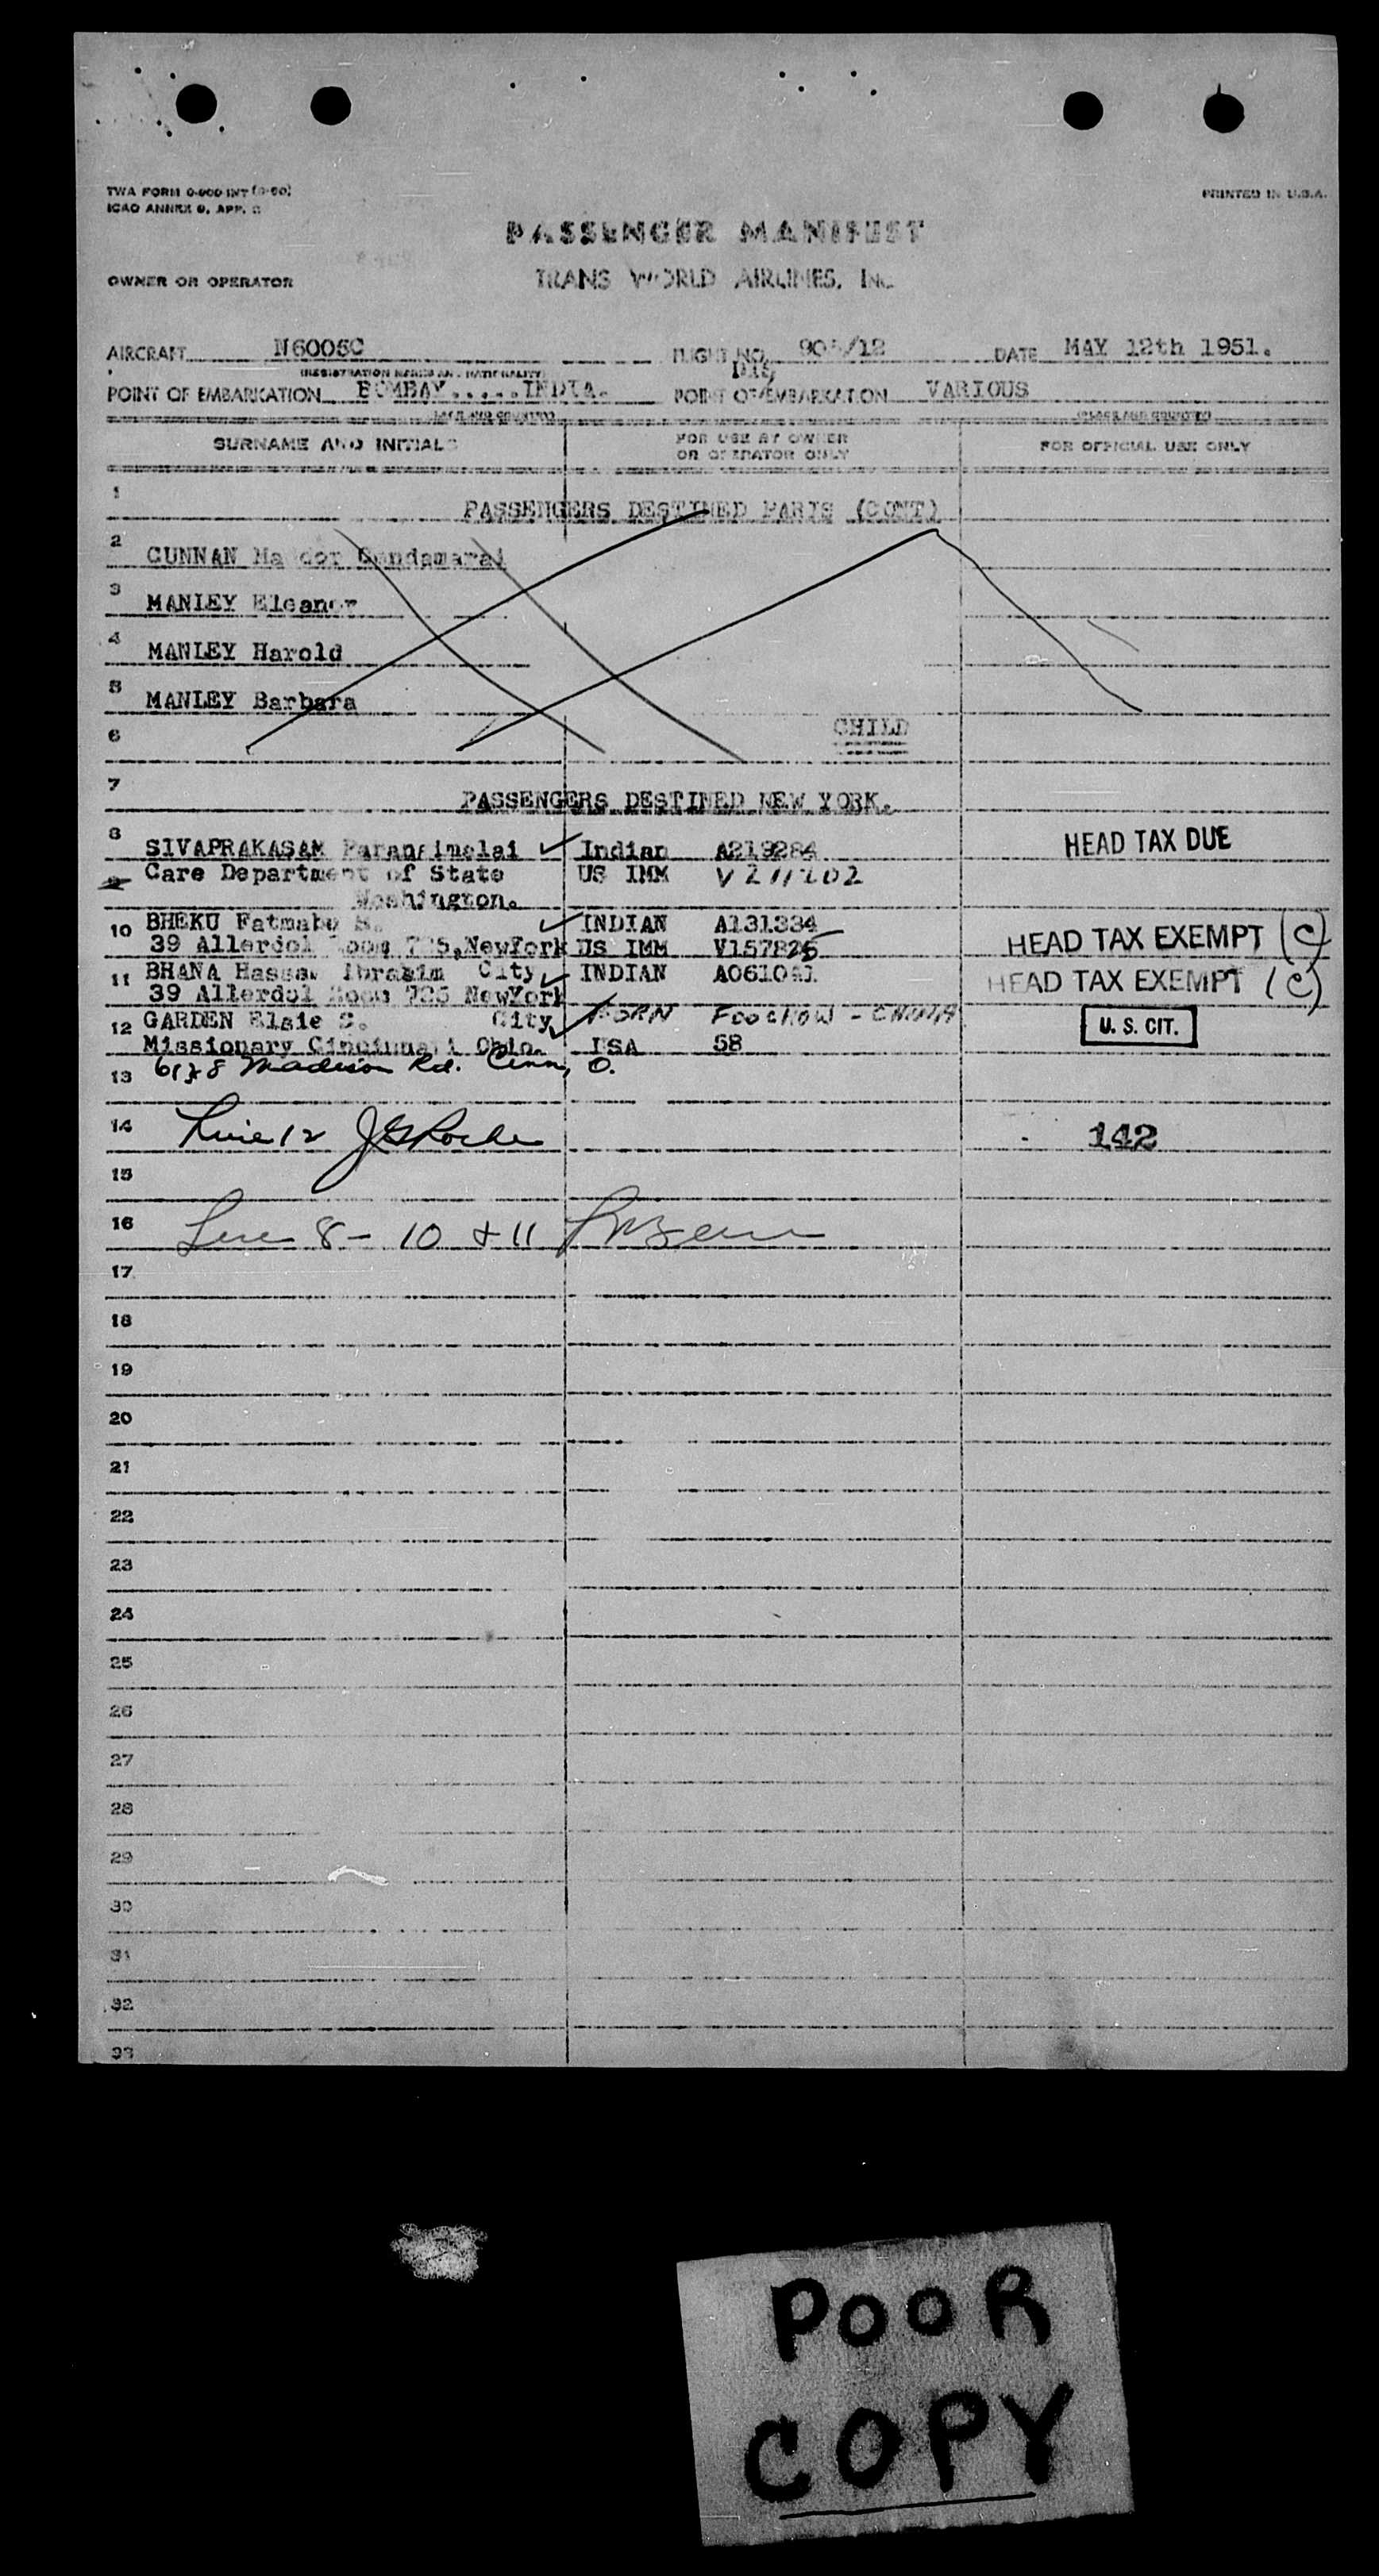 TWA FORM INT
ICAO ANNEX 9, APP.
PRINTED IN U.S.A.
PASSENGER MANIFEST
OWNER OR OPERATOR
TRANS WORLD AIRLINES, INC
AIRCRAFT N6005C FLIGHT NO. DATE MAY 12th 1951.
(REGISTRATION MARKS AND NATIONALITY) DIS
POINT OF EMBARKATION BOMBAY.....INDIA. POINT OF EMBARKATION VARIOUS
(PLACE AND COUNTRY) (PLACE AND COUNTRY)
SURNAME AND INITIALS FOR USE BY OWNER OR OPERATOR ONLY FOR OFFICIAL USE ONLY
1 PASSENGERS DESTINED PARIS (CONT)
2 CUNNAN
3 MANLEY Eleanor
4 MANLEY Harold
5 MANLEY Barbara
6 CHILD
7 PASSENGERS DESTINED NEW YORK.
8 SIVAPRAKASAM Indian A219284 HEAD TAX DUE
9 Care Department of State US IMM
Washington.
10 BHEKU Fatmabu INDIAN A131334
39 Allerdol Room 725, NewYork US IMM HEAD TAX EXEMPT (C)
11 BHANA Hassan Ibrahim City INDIAN HEAD TAX EXEMPT (C)
39 Allerdol Room 725 NewYork
12 GARDEN Elsie S. City BORN FOOCHOW - CHINA U. S. CIT.
Missionary Cincinnati Ohio. USA 58
13 Madison Rd. Cinn, O.
14 Line 12 142
15
16 Line 8 - 10 + 11
17
18
19
20
21
22
23
24
25
26
27
28
29
30
31
32
33
POOR
COPY